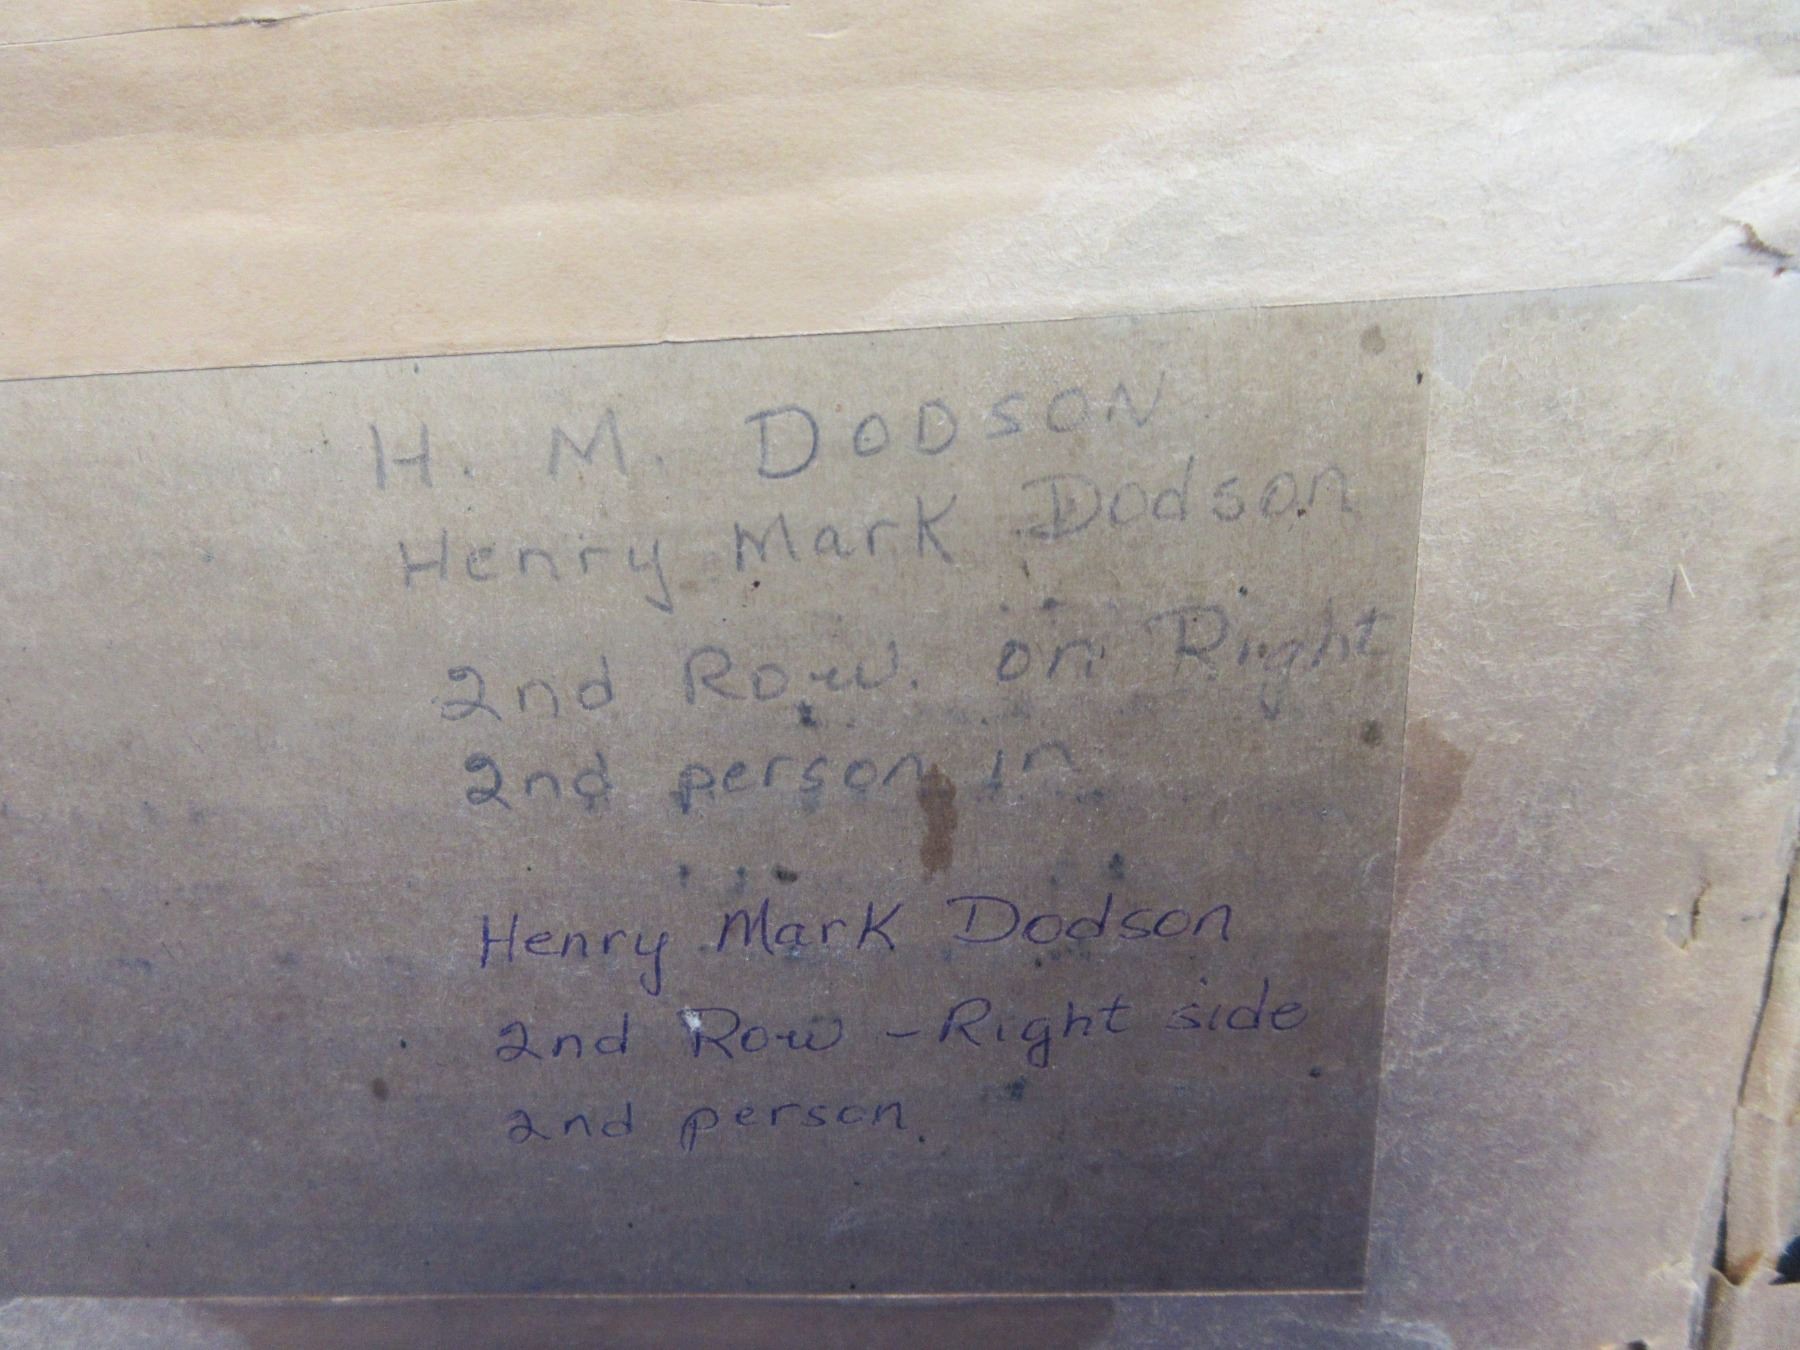 H. M. DODSON
Henry Mark Dodson
2nd Row. on Right
2nd person in
Henry Mark Dodson
2nd Row - Right side
2nd person.